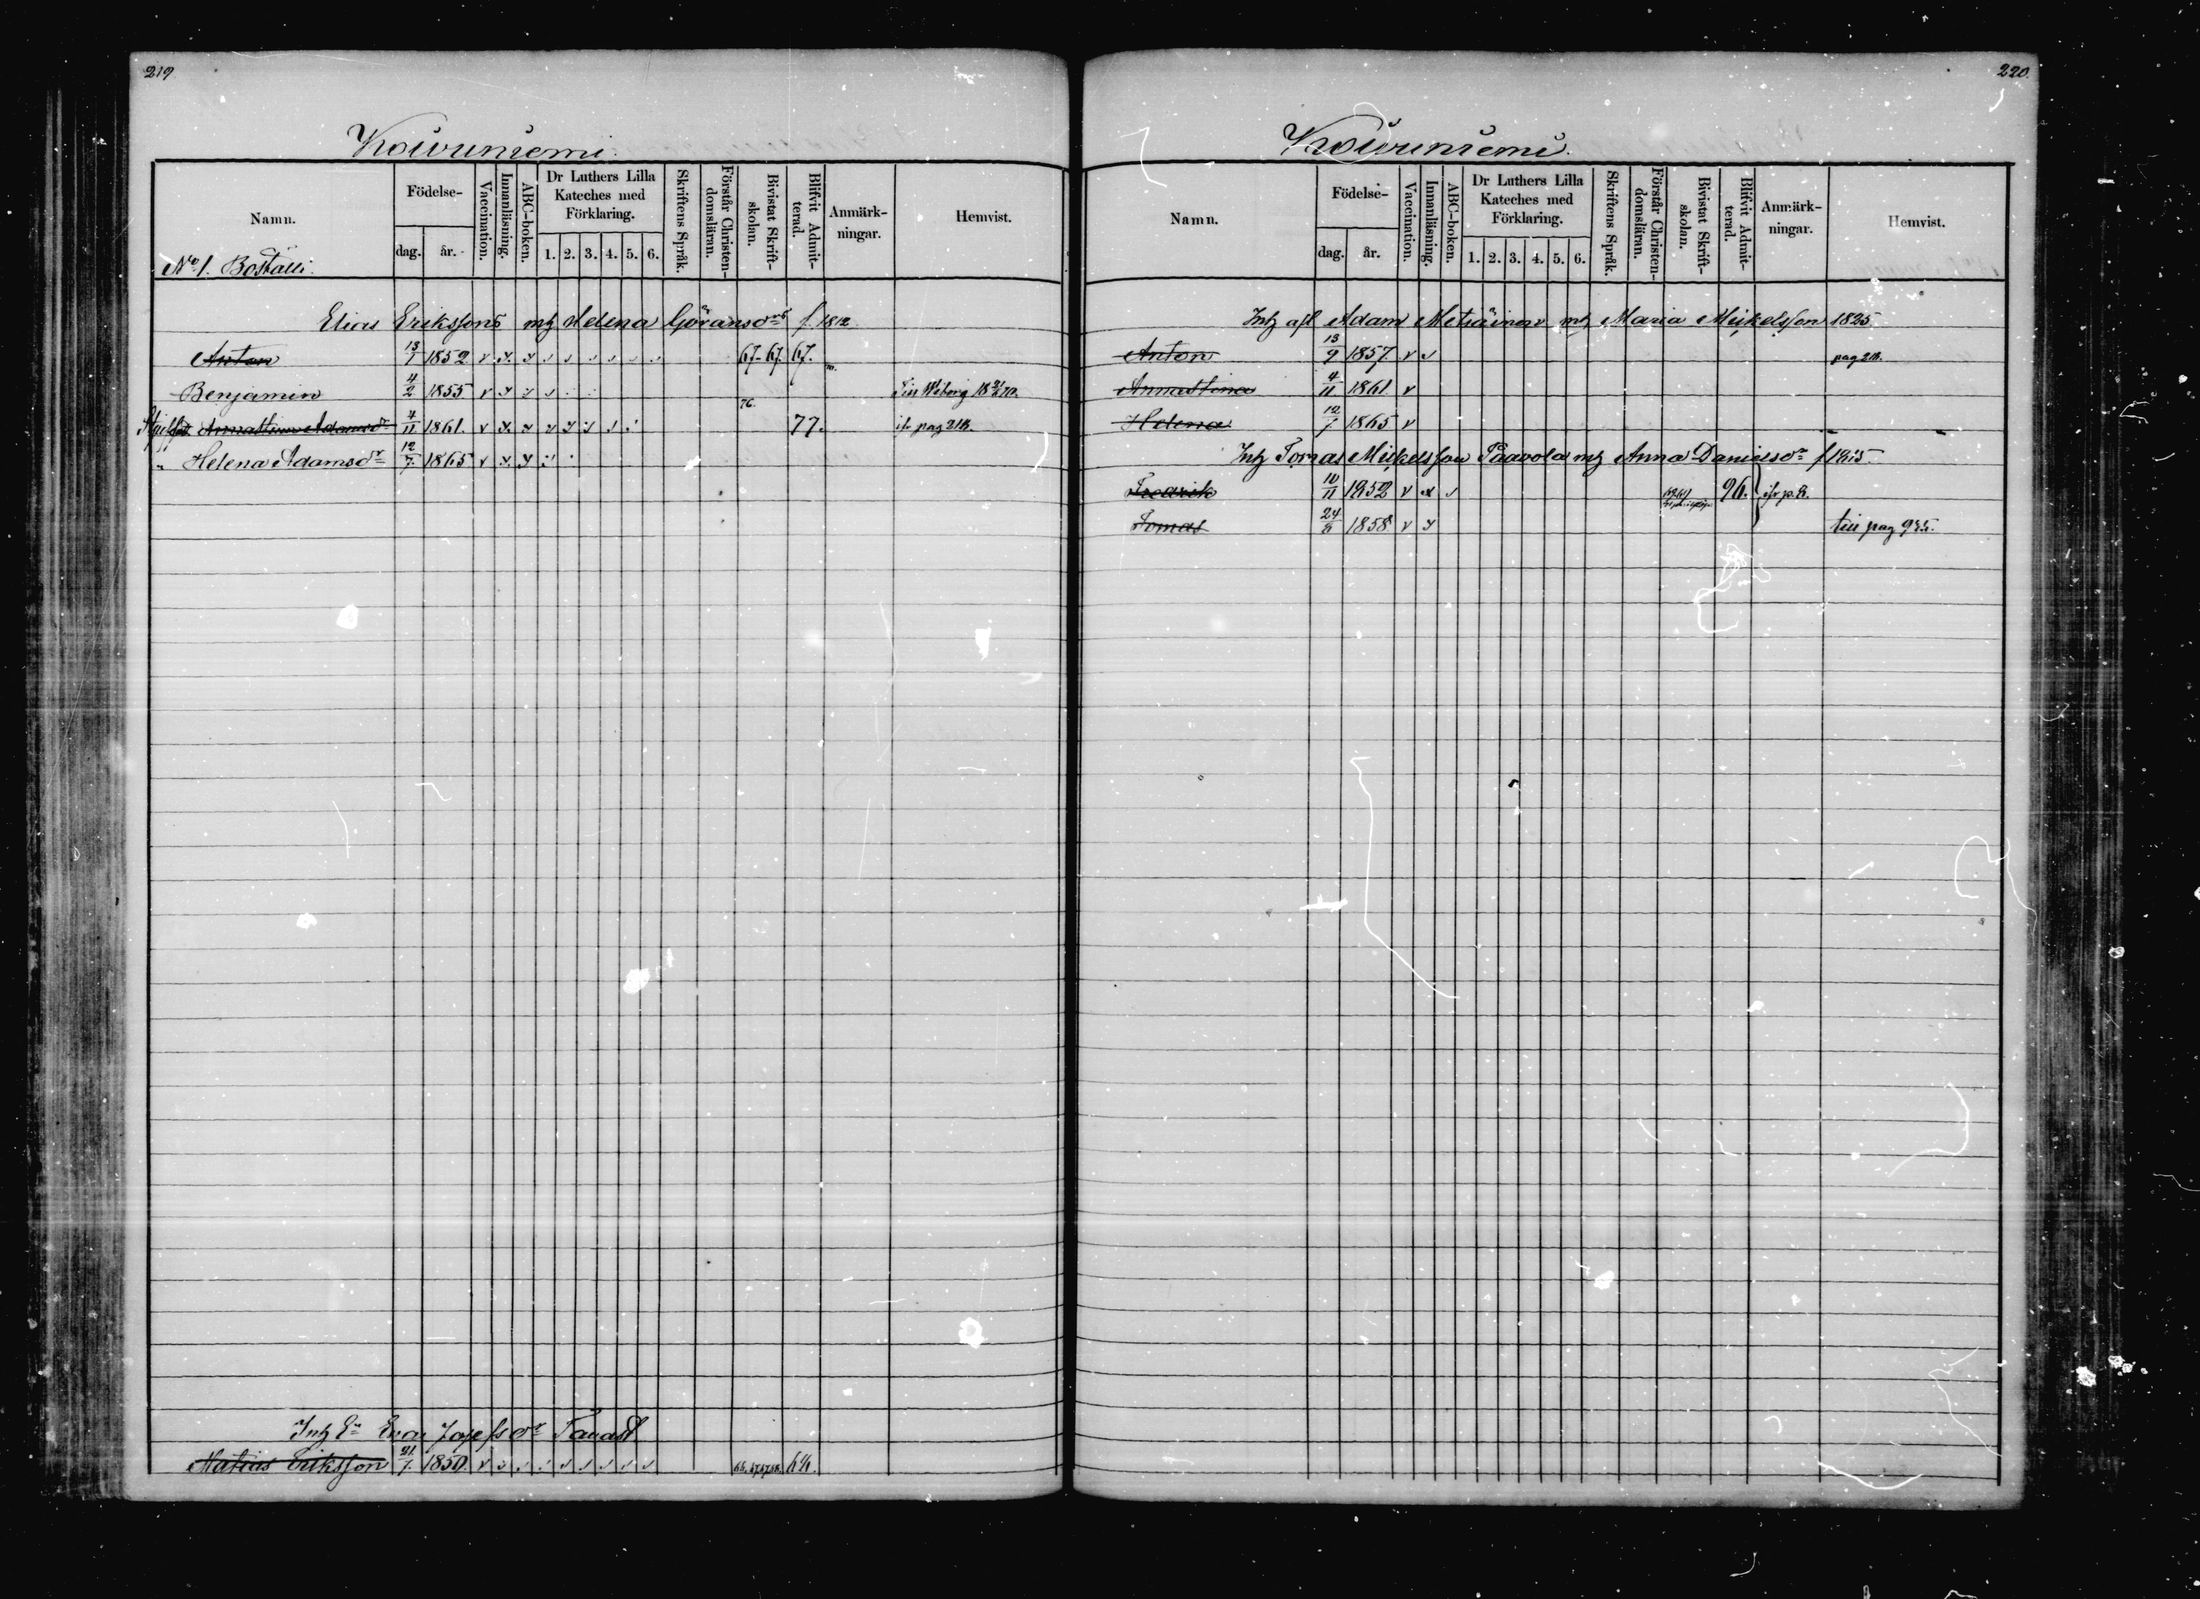 219
Koivuniemi.
Namn.
Födelse-
dag.
år.
Vaccination.
Innanläsning.
ABC-boken.
Dr Luthers Lilla Kateches med Förklaring.
1. 2. 3. 4. 5. 6.
Skriftens Språk.
Förstår Christen-domsläran.
Bivistat Skrift-skolan.
Blifvit Admit-terad.
Anmärk-ningar.
Hemvist.
No 1. Boställi.
Elias Erikssons mh Helena Göransdr f. 1812
Anton 13/1 1852 v 67-67. 67.
Benjamin 4/2 1855 v Till Wiborg
76.
Annastina Adamsdr 4/11 1861. v 77. ifr pag 218.
" Helena Adamsdr 12/7. 1865 v
Eva Josefsdr
Matias Eriksson 21/7. 1850 v
220.
Koivuniemi.
Namn.
Födelse-
dag.
år.
Vaccination.
Innanläsning.
ABC-boken.
Dr Luthers Lilla Kateches med Förklaring.
1. 2. 3. 4. 5. 6.
Skriftens Språk.
Förstår Christen-domsläran.
Bivistat Skrift-skolan.
Blifvit Admit-terad.
Anmärk-ningar.
Hemvist.
Inh afl Adam Meträinen mh Maria Mickelsson 1825
Anton 13/9 1857 v pag 218.
Annastina 4/11 1861. v
Helena 12/7 1865 v
Inh Tomas Mickelsson Paavola mh Anna Danielsdr f 1815
Fredrik 10/11 1852 v
Tomas 24/8 1858 v till pag 935.